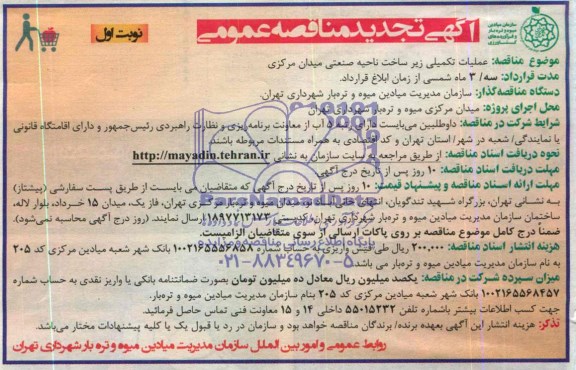 سازمان میادین
میوه و تره بار
و فرآورده‌های
کشاورزی
آگهی تجدید مناقصه عمومی
نوبت اول
موضوع مناقصه: عملیات تکمیلی زیر ساخت ناحیه صنعتی میدان مرکزی
مدت قرارداد: سه/ ۳ ماه شمسی از زمان ابلاغ قرارداد.
دستگاه مناقصه‌گذار: سازمان مدیریت میادین میوه و تره‌بار شهرداری تهران.
محل اجرای پروژه: میدان مرکزی میوه و تره‌بار شهرداری تهران
شرایط شرکت در مناقصه: داوطلبین می‌بایست دارای رتبه ۵ آب از معاونت برنامه‌ریزی و نظارت راهبردی رئیس‌جمهور و دارای اقامتگاه قانونی
یا نمایندگی/ شعبه در شهر/ استان تهران و کد اقتصادی به همراه مستندات مربوطه باشند
نحوه دریافت اسناد مناقصه: از طریق مراجعه به سایت سازمان به نشانی http://mayadin.tehran.ir
مهلت دریافت اسناد مناقصه: ۱۰ روز پس از تاریخ درج آگهی
مهلت ارائه اسناد مناقصه و پیشنهاد قیمت: ۱۰ روز پس از تاریخ درج آگهی که متقاضیان می بایست از طریق پست سفارشی (پیشتاز)
به نشانی تهران، بزرگراه شهید تندگویان، انتهای خیابان میدان مرکزی میوه و تره‌بار مرکزی تهران، فاز یک، میدان ۱۵ خرداد، بلوار لاله،
ساختمان سازمان مدیریت میادین میوه و تره‌بار شهرداری تهران، کدپستی ۱۱۸۹۷۷۱۳۱۷۳ ارسال نمایند. (روز درج آگهی محاسبه نمی‌شود).
ضمنا درج کامل موضوع مناقصه بر روی پاکات ارسالی از سوی متقاضیان الزامیست.
هزینه انتشار اسناد مناقصه: ۲۰۰.۰۰۰ ریال طی فیش واریزی به حساب شماره ۱۰۰۲۱۶۵۵۵۶۸۵۸ بانک شهر شعبه میادین مرکزی کد ۲۰۵
به نام سازمان مدیریت میادین میوه و تره‌بار می باشد.
میزان سپرده شرکت در مناقصه: یکصد میلیون ریال معادل ده میلیون تومان بصورت ضمانتنامه بانکی یا واریز نقدی به حساب شماره
۱۰۰۲۱۶۵۵۶۸۴۵۷ بانک شهر شعبه میادین مرکزی کد ۲۰۵ بنام سازمان مدیریت میادین میوه و تره‌بار.
جهت کسب اطلاعات بیشتر باشماره تلفن ۵۵۰۱۵۲۳۲ داخلی ۱۴ و ۱۵ معاونت فنی تماس حاصل فرمائید.
تذکر: هزینه انتشار این آگهی بعهده برنده/ برندگان مناقصه خواهد بود و سازمان در رد یا قبول یک یا کلیه پیشنهادات مختار می‌باشد.
روابط عمومی و امور بین الملل سازمان مدیریت میادین میوه و تره بار شهرداری تهران
پایگاه اطلاع رسانی مناقصه و مزایده
۰۲۱-۸۸۳۴۹۶۷۰-۵